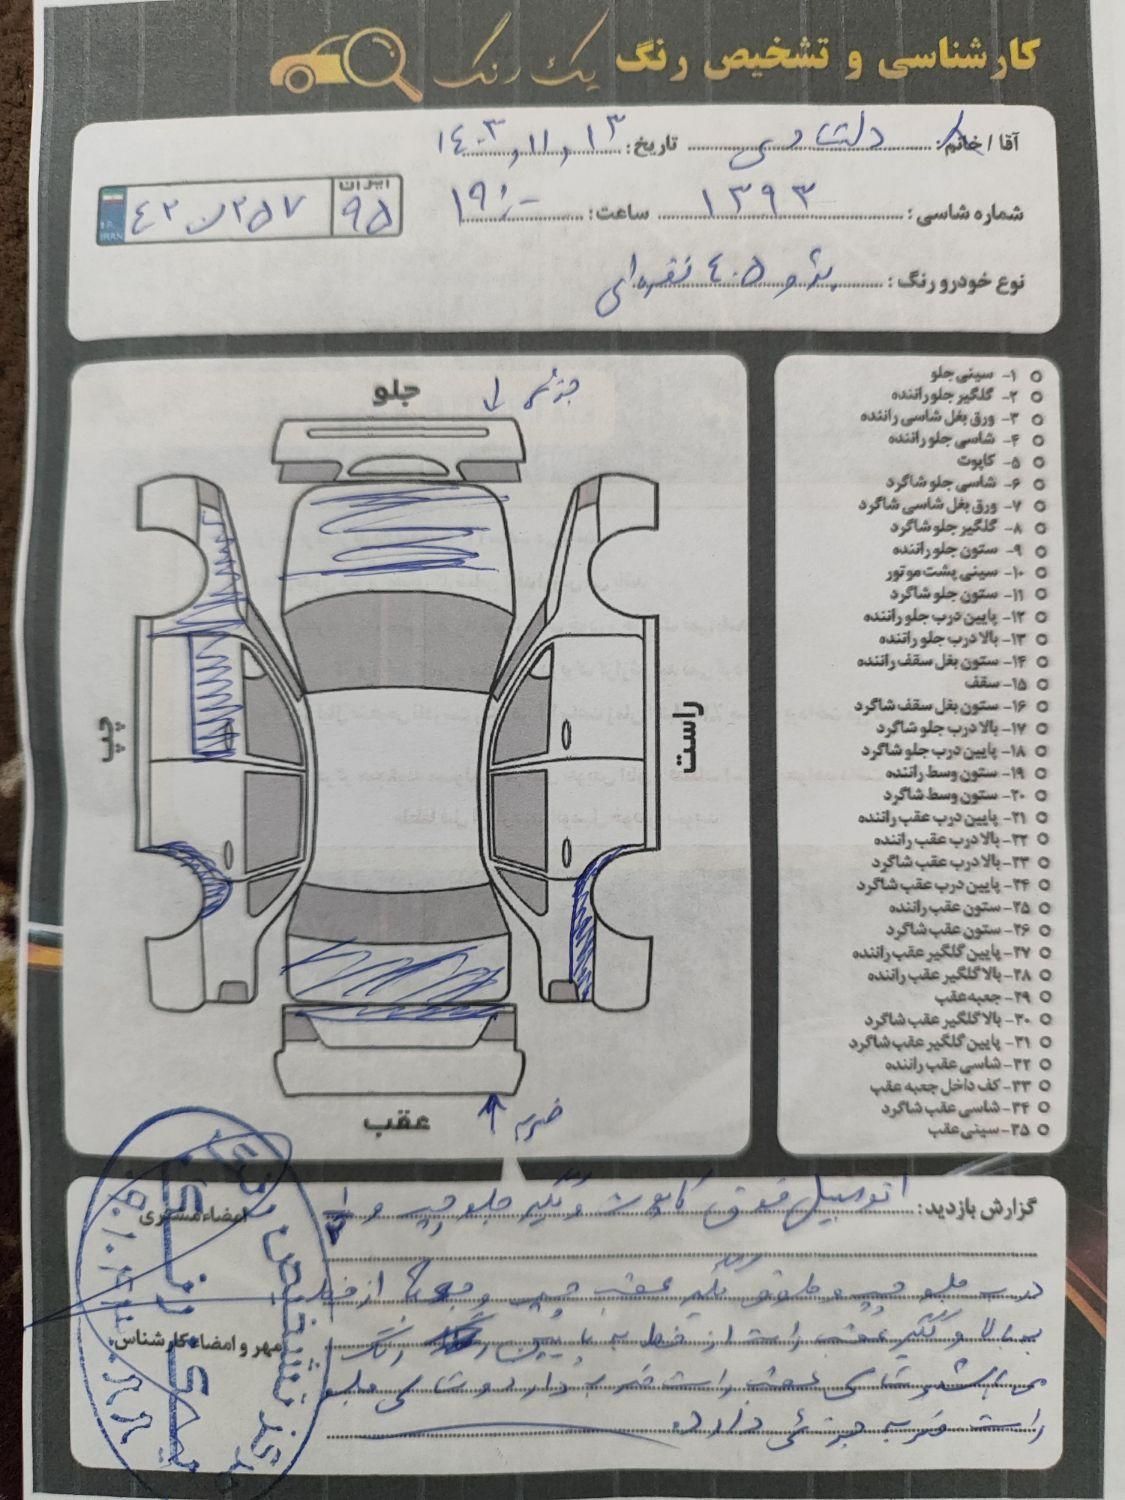 کارشناسی و تشخیص رنگ یک رنگ
آقا / خانم: دلشادی تاریخ: ۱۴۰۳,۱۱,۱۳
شماره شاسی: ۱۳۹۳ ساعت: ۱۹:۰۰
ایران
۹۵ ۲۵۷ ۴۲
I.R. IRAN
نوع خودرو رنگ: پژو ۴۰۵ نقره‌ای
جلو جزئی
چپ
راست
عقب ضربه
۱- سینی جلو
۲- گلگیر جلو راننده
۳- ورق بغل شاسی راننده
۴- شاسی جلو راننده
۵- کاپوت
۶- شاسی جلو شاگرد
۷- ورق بغل شاسی شاگرد
۸- گلگیر جلو شاگرد
۹- ستون جلو راننده
۱۰- سینی پشت موتور
۱۱- ستون جلو شاگرد
۱۲- پایین درب جلو راننده
۱۳- بالا درب جلو راننده
۱۴- ستون بغل سقف راننده
۱۵- سقف
۱۶- ستون بغل سقف شاگرد
۱۷- بالا درب جلو شاگرد
۱۸- پایین درب جلو شاگرد
۱۹- ستون وسط راننده
۲۰- ستون وسط شاگرد
۲۱- پایین درب عقب راننده
۲۲- بالا درب عقب راننده
۲۳- بالا درب عقب شاگرد
۲۴- پایین درب عقب شاگرد
۲۵- ستون عقب راننده
۲۶- ستون عقب شاگرد
۲۷- پایین گلگیر عقب راننده
۲۸- بالا گلگیر عقب راننده
۲۹- جعبه عقب
۳۰- بالا گلگیر عقب شاگرد
۳۱- پایین گلگیر عقب شاگرد
۳۲- شاسی عقب راننده
۳۳- کف داخل جعبه عقب
۳۴- شاسی عقب شاگرد
۳۵- سینی عقب
گزارش بازدید: اتومبیل فوق کاپوت و گلگیر جلو چپ و
درب جلو چپ و گلگیر عقب چپ و از خط
به بالا و گلگیر عقب راست از خط به پایین رنگ
می باشد و شاسی عقب راست ضربه دارد و شاسی جلو
راست ضربه جزئی دارد.
امضاء مشتری
مهر و امضاء کارشناس